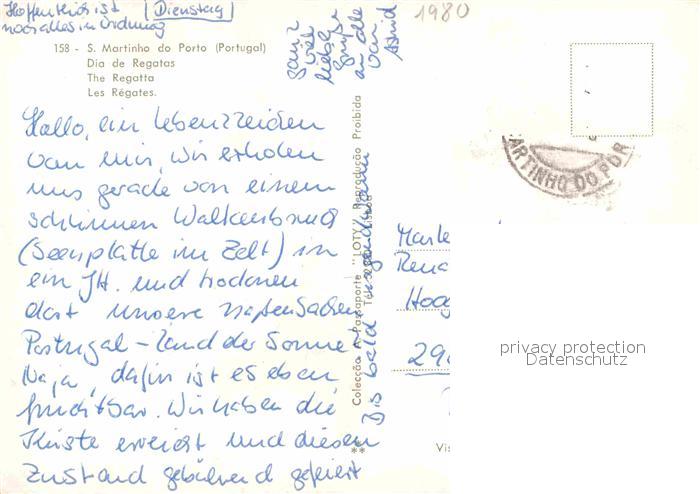 Hoffentlich ist [Dienstag]
noch alles in Ordnung
1980
158 - S. Martinho do Porto (Portugal)
Dia de Regatas
The Regatta
Les Régates.
Hallo, ein Lebenszeichen
von mir, wir erholen
uns gerade von einem
schlimmen Wolkenbruch
(Seenplatte im Zelt) in
ein JH. und trocknen
dort unsere nassen Sachen
Portugal - Land der Sonne!
Naja, dafür ist es eben
fruchtbar. Wir haben die
Küste erreicht und diesen
Zustand gebührend gefeiert
Bis bald irgendwann
ganz
viele
liebe
Grüße
an alle
von
Astrid
Colecção Passaporte "LOTY" Reprodução Proibida
**
ARTINHO DO POR
Marle
Rena
Hoog
29
Vis
privacy protection
Datenschutz